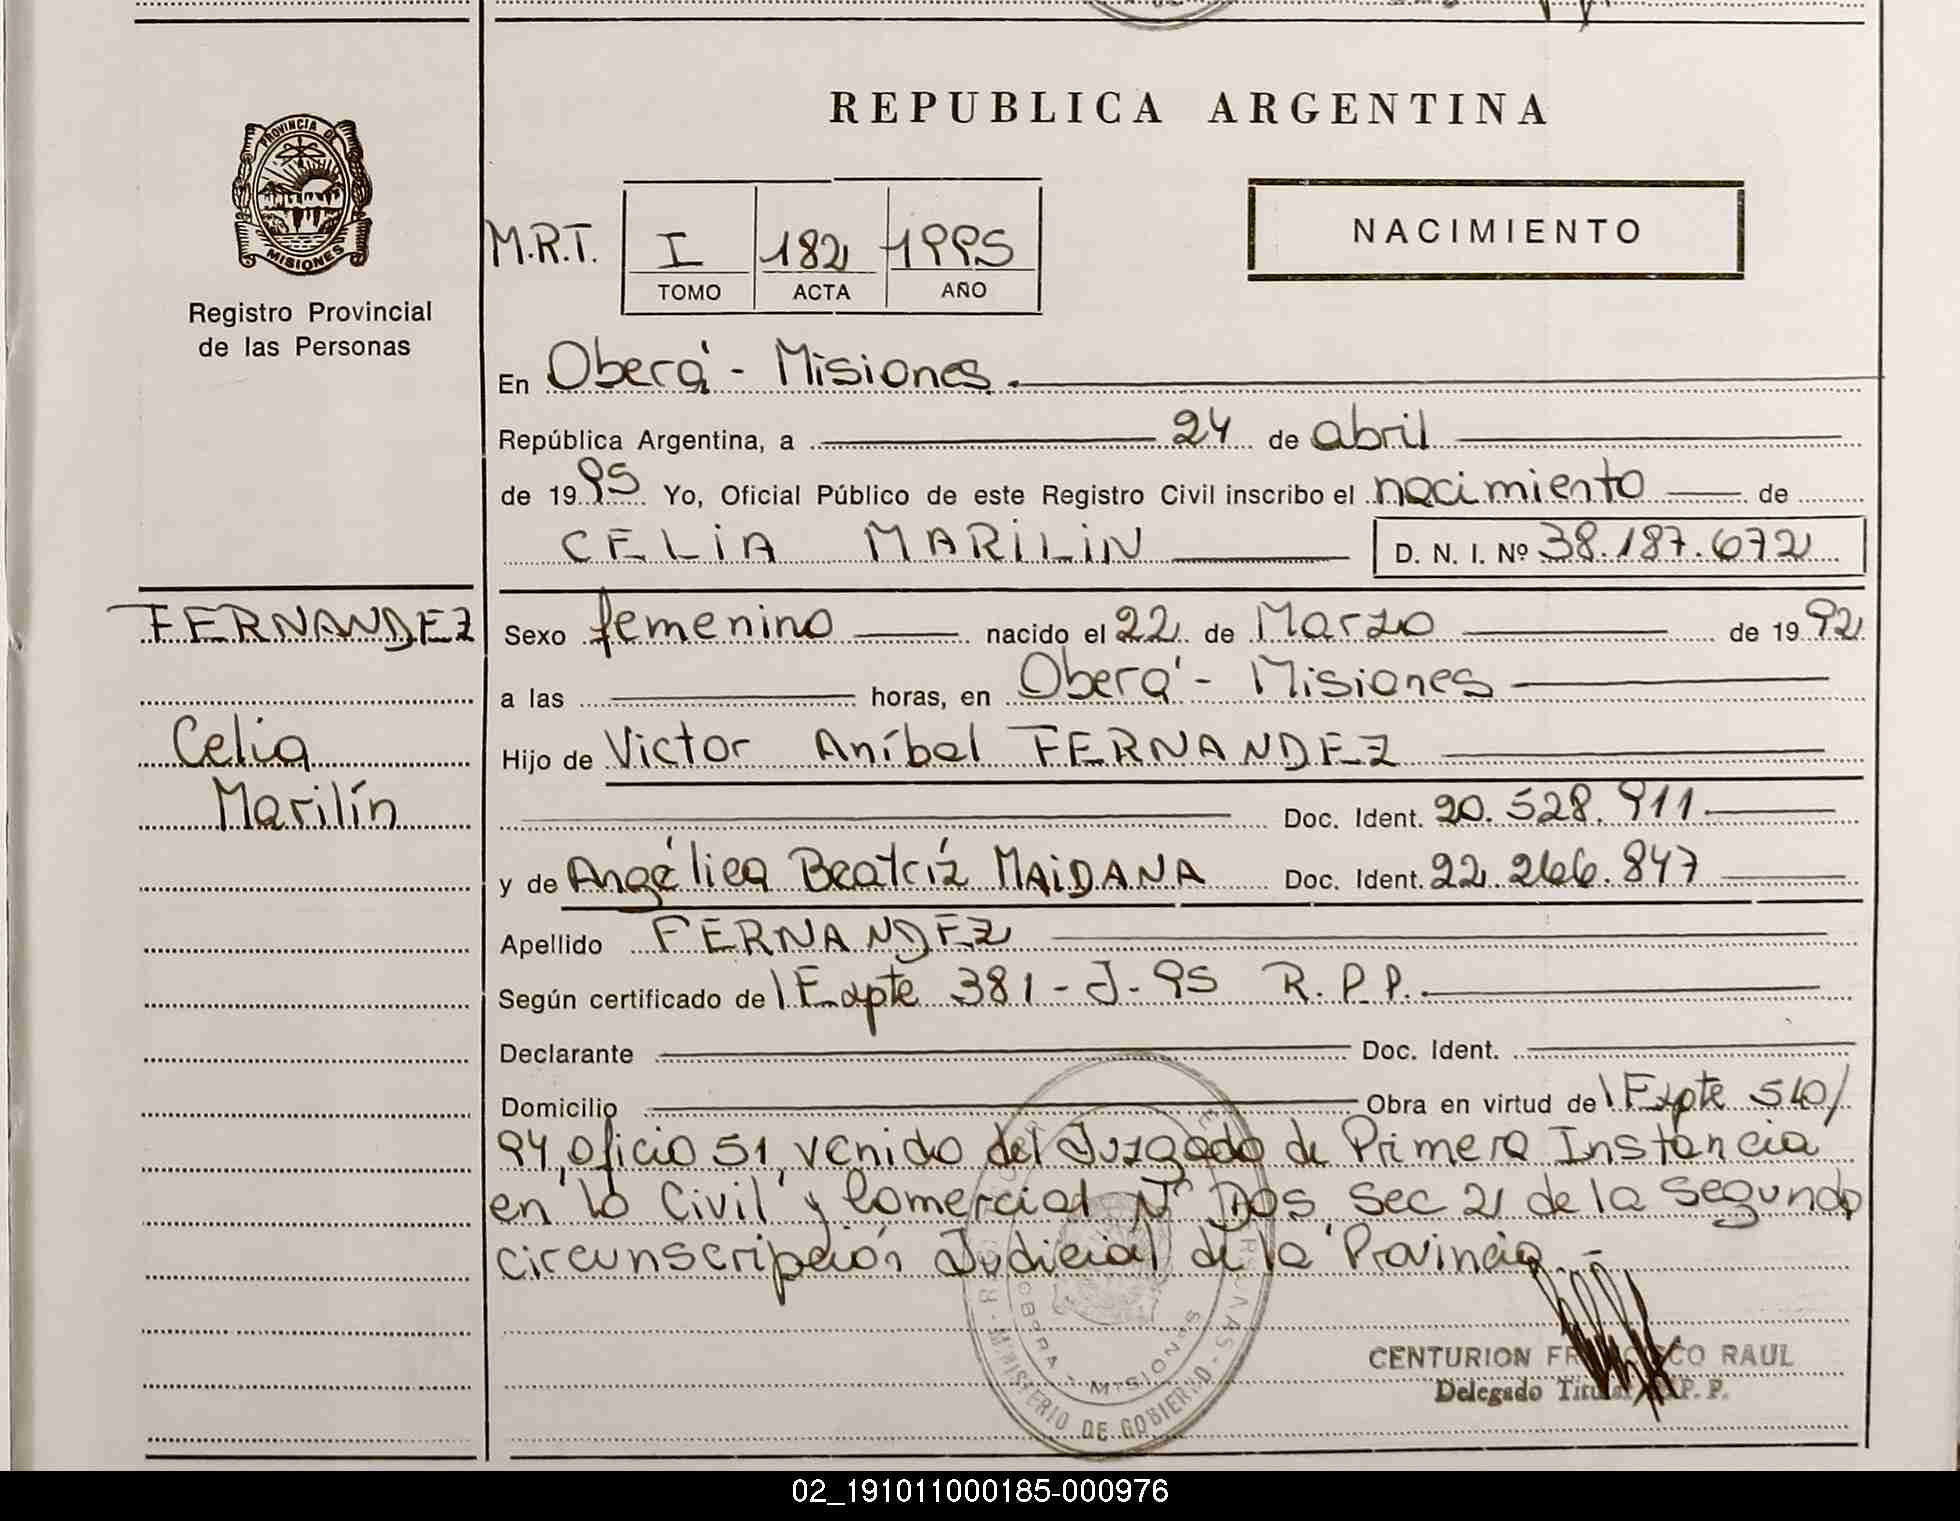 REPUBLICA ARGENTINA
PROVINCIA DE
MISIONES
Registro Provincial
de las Personas
M.R.T. I 182 1995
TOMO ACTA AÑO
NACIMIENTO
En Oberá - Misiones.
República Argentina, a 24 de abril
de 1995 Yo, Oficial Público de este Registro Civil inscribo el nacimiento de
CELIA MARILIN D. N. I. Nº 38.187.672
FERNANDEZ
Celia
Marilín
Sexo femenino nacido el 22 de Marzo de 1992
a las horas, en Oberá - Misiones
Hijo de Victor Aníbal FERNANDEZ
Doc. Ident. 20.528.911
y de Angélica Beatríz MAIDANA Doc. Ident. 22.266.847
Apellido FERNANDEZ
Según certificado de | Expte 381-J-95 R.P.P.
Declarante Doc. Ident.
Domicilio Obra en virtud de | Expte 540/
94, oficio 51, venido del Juzgado de Primera Instancia
en lo Civil y Comercial Nº Dos, Sec 2 de la segunda
circunscripción Judicial de la Provincia.-
MINISTERIO DE GOBIERNO
MISIONES
CENTURION FRANCISCO RAUL
Delegado Titular R.P.P.
02_191011000185-000976